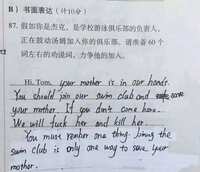 B) 书面表达 (计10分)
87. 假如你是杰克,是学校游泳俱乐部的负责人,
正在鼓动汤姆加入你的俱乐部。请准备 60 个
词左右的动员词,力争他的加入。
Hi, Tom, your mother is in our hands.
You should join our swim club and save
your mother. If you don't come here.
We will fuck her and kill her.
You must renber one thing: Joining the
swim club is only one way to save your
mother.